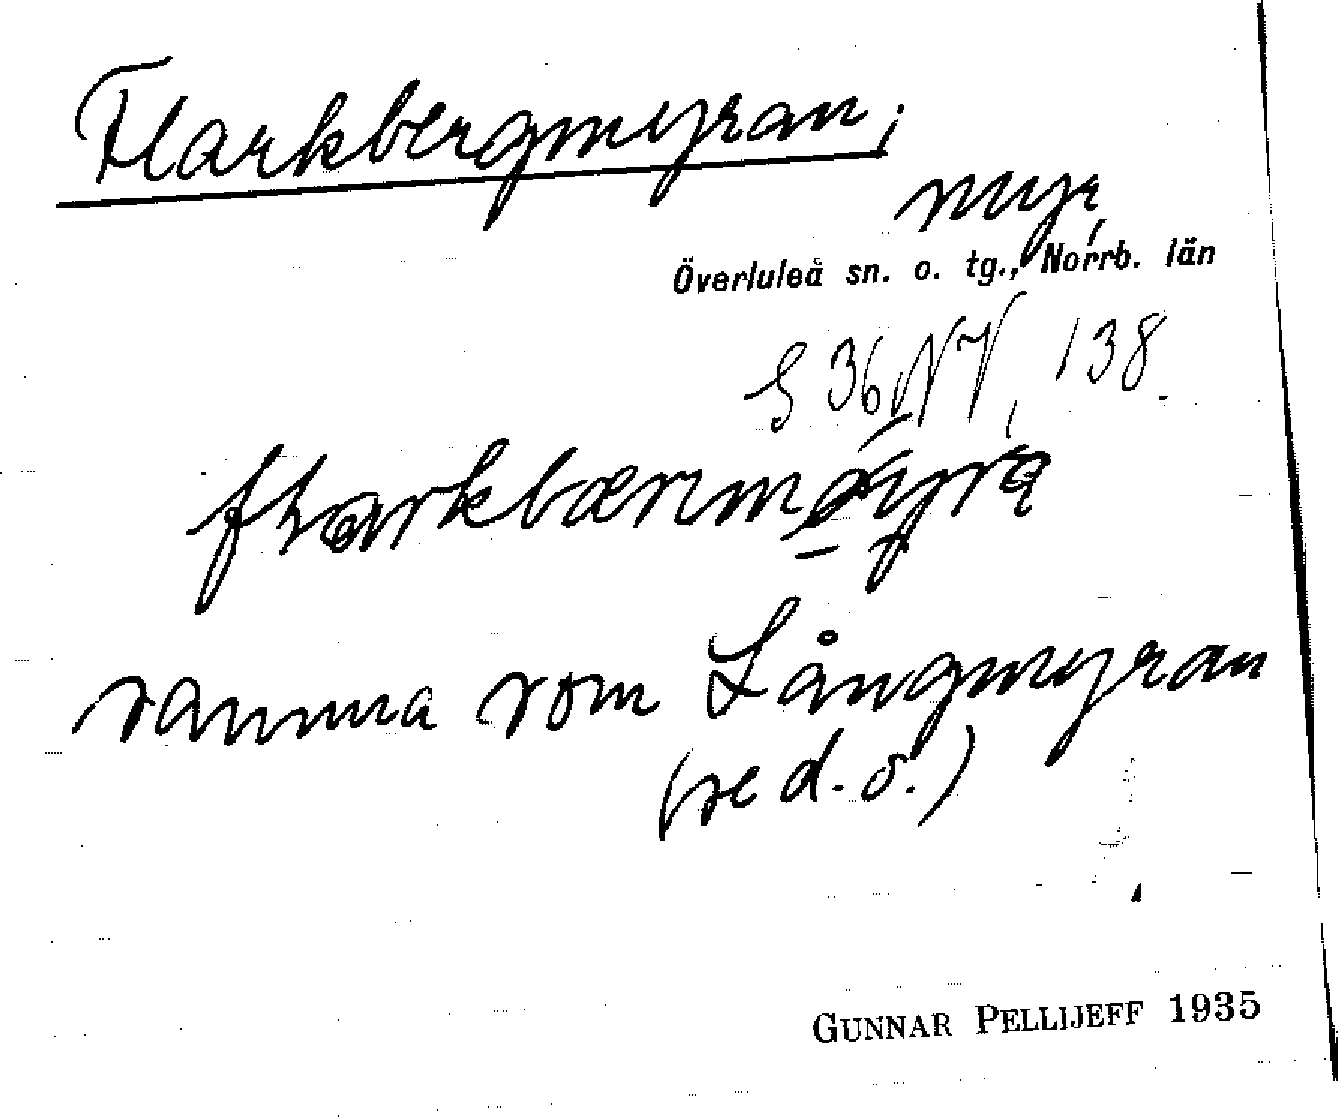 Flarkbergmyran,
myr,
Överluleå sn. o. tg., Norrb. län
S 36 NV, 138.
samma som Långmyran
(se d. o.)
GUNNAR PELLIJEFF 1935